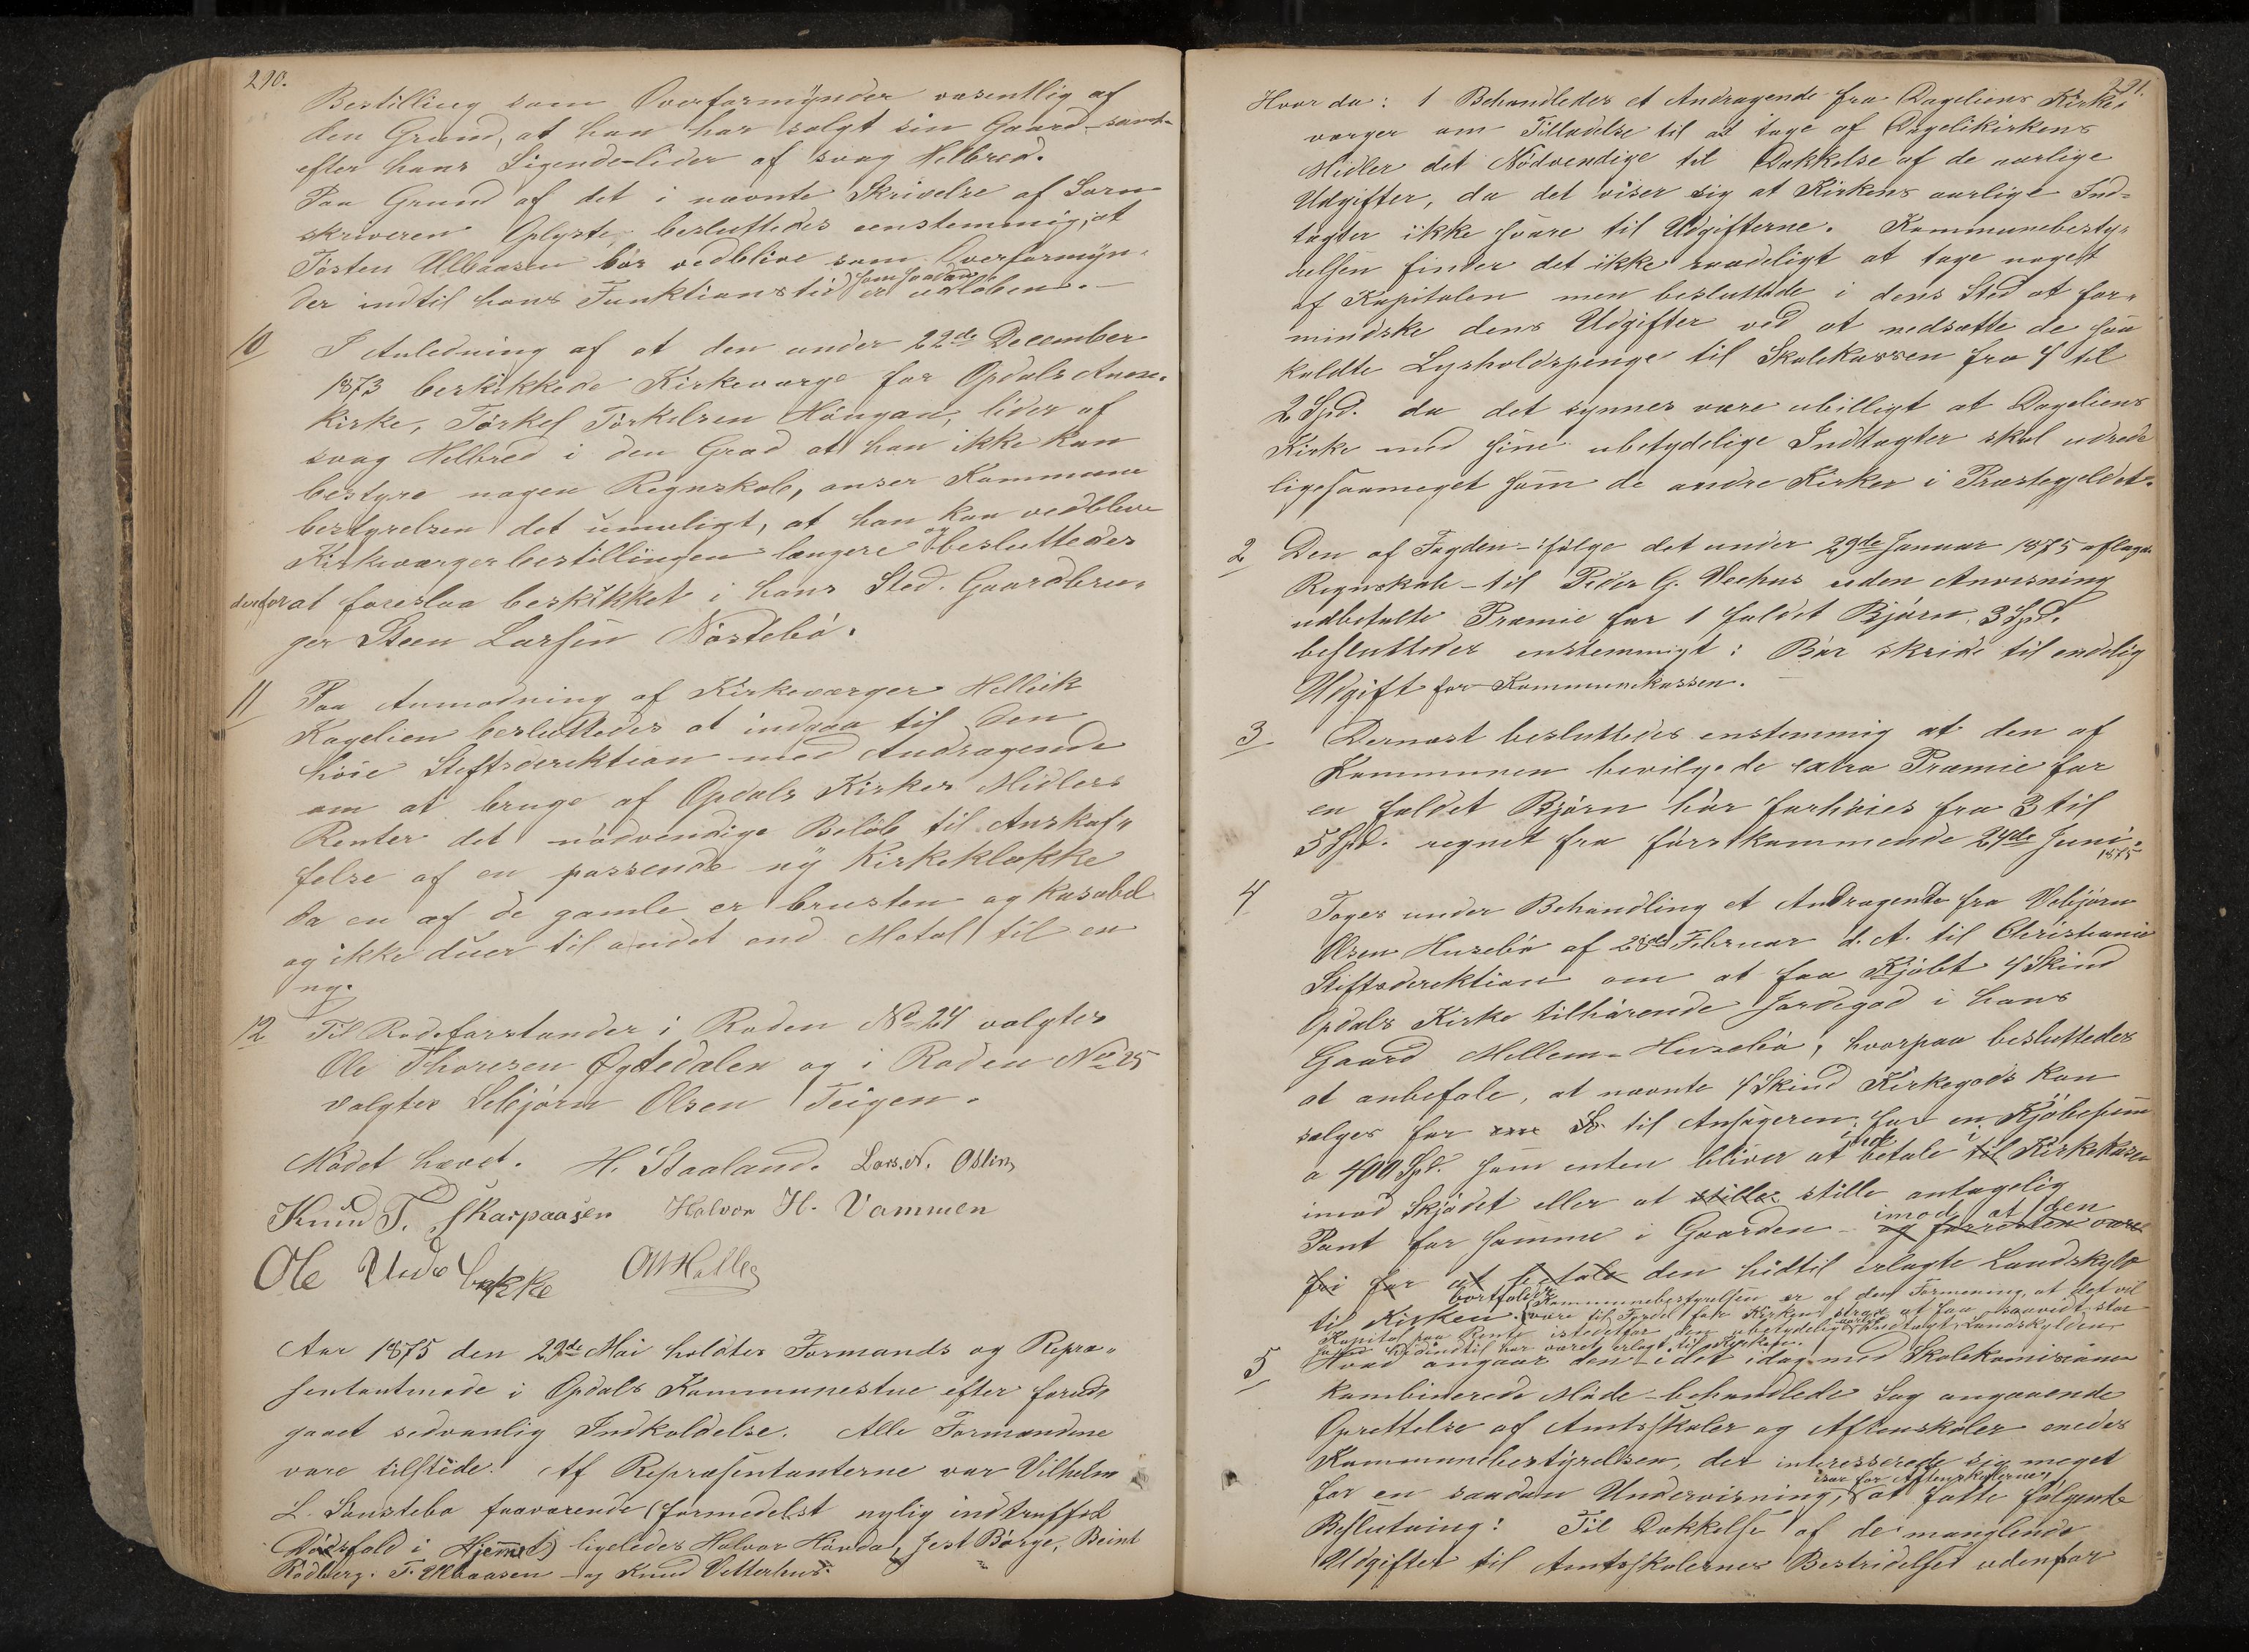 290.
Bestilling som Overformynder væsentlig af
den Grund, at han har solgt sin Gaard samt
efter hans Sigende lider af svag Helbred.
Paa Grund af det i nævnte Skrivelse af Soren
skriveren Oplyste, besluttedes eenstemmig, at
Tosten Ulbaasen bör vedblive som Overformyn-
der indtil hans Funktionstid som saadan er udløben. —
10 I Anledning af at den under 22de December
1873 beskikkede Kirkeværge for Opdals Annex-
kirke, Törkel Törkelsen Haugan, lider af
svag Helbred i den Grad at han ikke kan
bestyre nogen Regnskab, anser Kommune
bestyrelsen det umuligt, at han kan vedblive
Kirkeværgerbestillingen længere og besluttedes
derfor at foreslaa beskikket i hans Sted. Gaardbru-
ger Steen Larsen Nördstebö.
11 Paa Anmodning af Kirkeværger Helleik
Kagelien besluttedes at indgaa til den
höie Stiftsdirektion med Andragende
om at bruge af Opdals Kirkes Midlers
Renter det nödvendige Belöb til Anskaf-
felse af en passende ny Kirkeklokke
da en af de gamle er brusten og kasabel
og ikke duer til andet end Metal til en
ny.
12 Til Rodeforstander i Roden No 24 valgtes
Ole Thoresen Øytedalen og i Roden No 25
valgtes Sebjörn Olsen Teigen.
Mödet hævet. H. Staaland. Lars. N. Oslin,
Knud T. Skarpaasen Halvor H. Vammen
Ole Underbakke OMHalle
Aar 1875 den 29de Mai holdtes Formands og Repræ-
sentantmøde i Opdals Kommunestue efter forud-
gaaet sedvanlig Indkaldelse. Alle Formændene
vare tilstede. Af Repræsentanterne var Vilhelm
L. Sönstebö fraværende (formedelst nylig indtruffet
Dödsfald i Hjemmet) ligeledes Halvor Hövda, Jest Börge, Beint
Rödberg. T. Ulbaasen og Knud Vetterhus.
291.
Hvorda: 1 Behandledes et Andragende fra Dageliens Kirke-
værger om Tilladelse til at tage af Dagelikirkens
Midler det Nödvendige til Dækkelse af de aarlige
Udgifter, da det viser sig at Kirkens aarlige Ind-
tægter ikke svare til Udgifterne. Kommunebesty-
relsen finder det ikke raadeligt at tage noget
af Kapitalen men besluttede i dens Sted at for-
mindske dens Udgifter ved at nedsætte de saa
kaldte Lysholdspenge til Skolekassen fra 4 til
2 Spd. da det synnes være ubilligt at Dageliens
Kirke med sine ubetydelige Indtægter skal udrede
ligesaameget som de andre Kirker i Præstegjeldet.
2 Den af Fogden ifölge det under 29de Januar 1875 aflagte
Regnskab til Peder G. Veehus uden Anvisning
udbetalte Præmie for 1 fældet Björn, 3 Spd.
besluttedes enstemmigt: Bör skride til endelig
Udgift for Kommunekassen.
3 Dernæst besluttedes enstemmig at den af
Kommunen bevilgede extra Præmie for
en fældet Björn bör forhöies fra 3 til
5 Spd. regnet fra förstkommende 24de Juni
1875
4 Toges under Behandling et Andragende fra Vebjörn
Olsen Husebö af 28de Februar d. A. til Christiania
Stiftsdirektion om at faa Kjöbt 4 Skind
Opdals Kirke tilhörende Jordegod i hans
Gaard Mellem-Husebö, hvorpaa besluttedes
at anbefale, at nævnte 4 Skind Kirkegods kan
sælges til Ansögeren for en Kjöbesum
a 400 Spd. som enten bliver at indbetale i til Kirkekassen
imod Skjödet eller at stille stille antagelig
Pant for samme i Gaarden imod at den og forresten være
fri for at betale den hidtil erlagte Landskyld
til Kirken bortfalder. Kommunebestyrelsen er af den Formening, at det vil
være til Fordel for Kirken strax at faa saavidt stor
Kapital paa Rente istedetfor den ubetydelige aarlige Indtægt Landskylden
som hidindtil har været erlagt til Kirken.
5 Hvad angaar den i det idag med Skolekomisionen
kombinerede Möde behandlede Sag angaaende
Oprettelse af Amtsskoler og Aftenskoler enedes
Kommunebestyrelsen, der interesserede sig meget
for en saadan Undervisning, især for Aftenskolerne, at fatte fölgende
Beslutning: Til Dækkelse af de manglende
Udgifter til Amtsskolernes Bestridelse udenfor